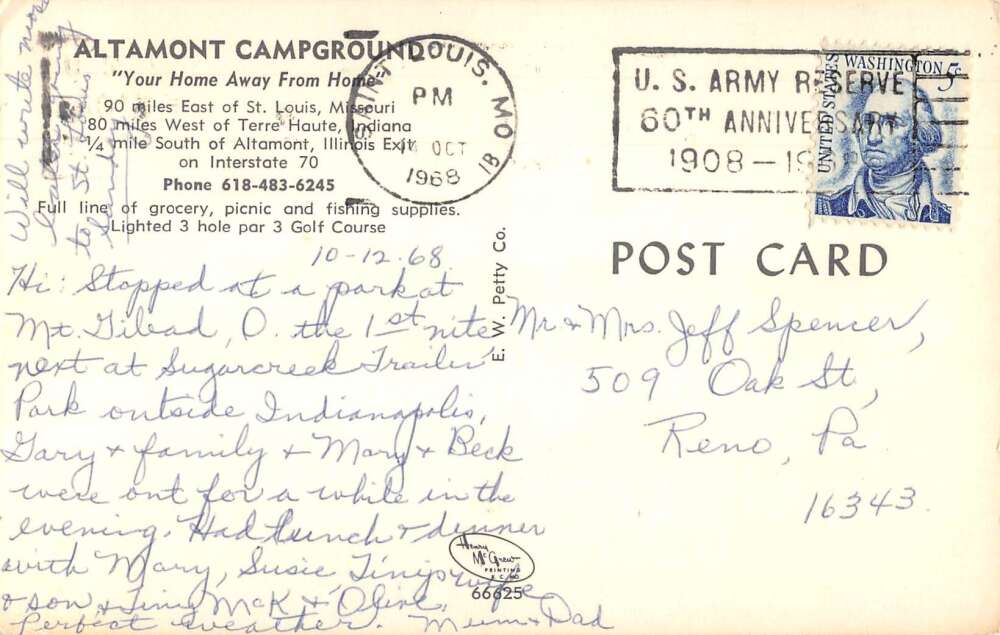 ALTAMONT CAMPGROUND
"Your Home Away From Home"
90 miles East of St. Louis, Missouri
80 miles West of Terre Haute, Indiana
1/4 mile South of Altamont, Illinois Exit
on Interstate 70
Phone 618-483-6245
Full line of grocery, picnic and fishing supplies.
Lighted 3 hole par 3 Golf Course
Will write more
to St. Louis
SAINT LOUIS, MO
PM
14 OCT
1968
1B
U. S. ARMY RESERVE
60TH ANNIVERSARY
1908 – 19
UNITED STATES
WASHINGTON 5c
POST CARD
E. W. Petty Co.
10-12-68
Hi: Stopped at a park at
Mt. Gilead, O. the 1st nite
next at Sugarcreek Trailer
Park outside Indianapolis,
Gary + family + Mary + Beck
were out for a while in the
evening. Had lunch + dinner
with Mary, Susie, Tiny, wife
+ son, + Tiny McK + Olive.
Perfect weather. Mum + Dad
Mr + Mrs. Jeff Spencer,
509 Oak St,
Reno, Pa
16343
Henry
McGrew
PRINTING
K.C. MO
66625